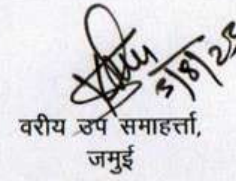 5/8/25
वरीय उप समाहर्त्ता,
जमुई